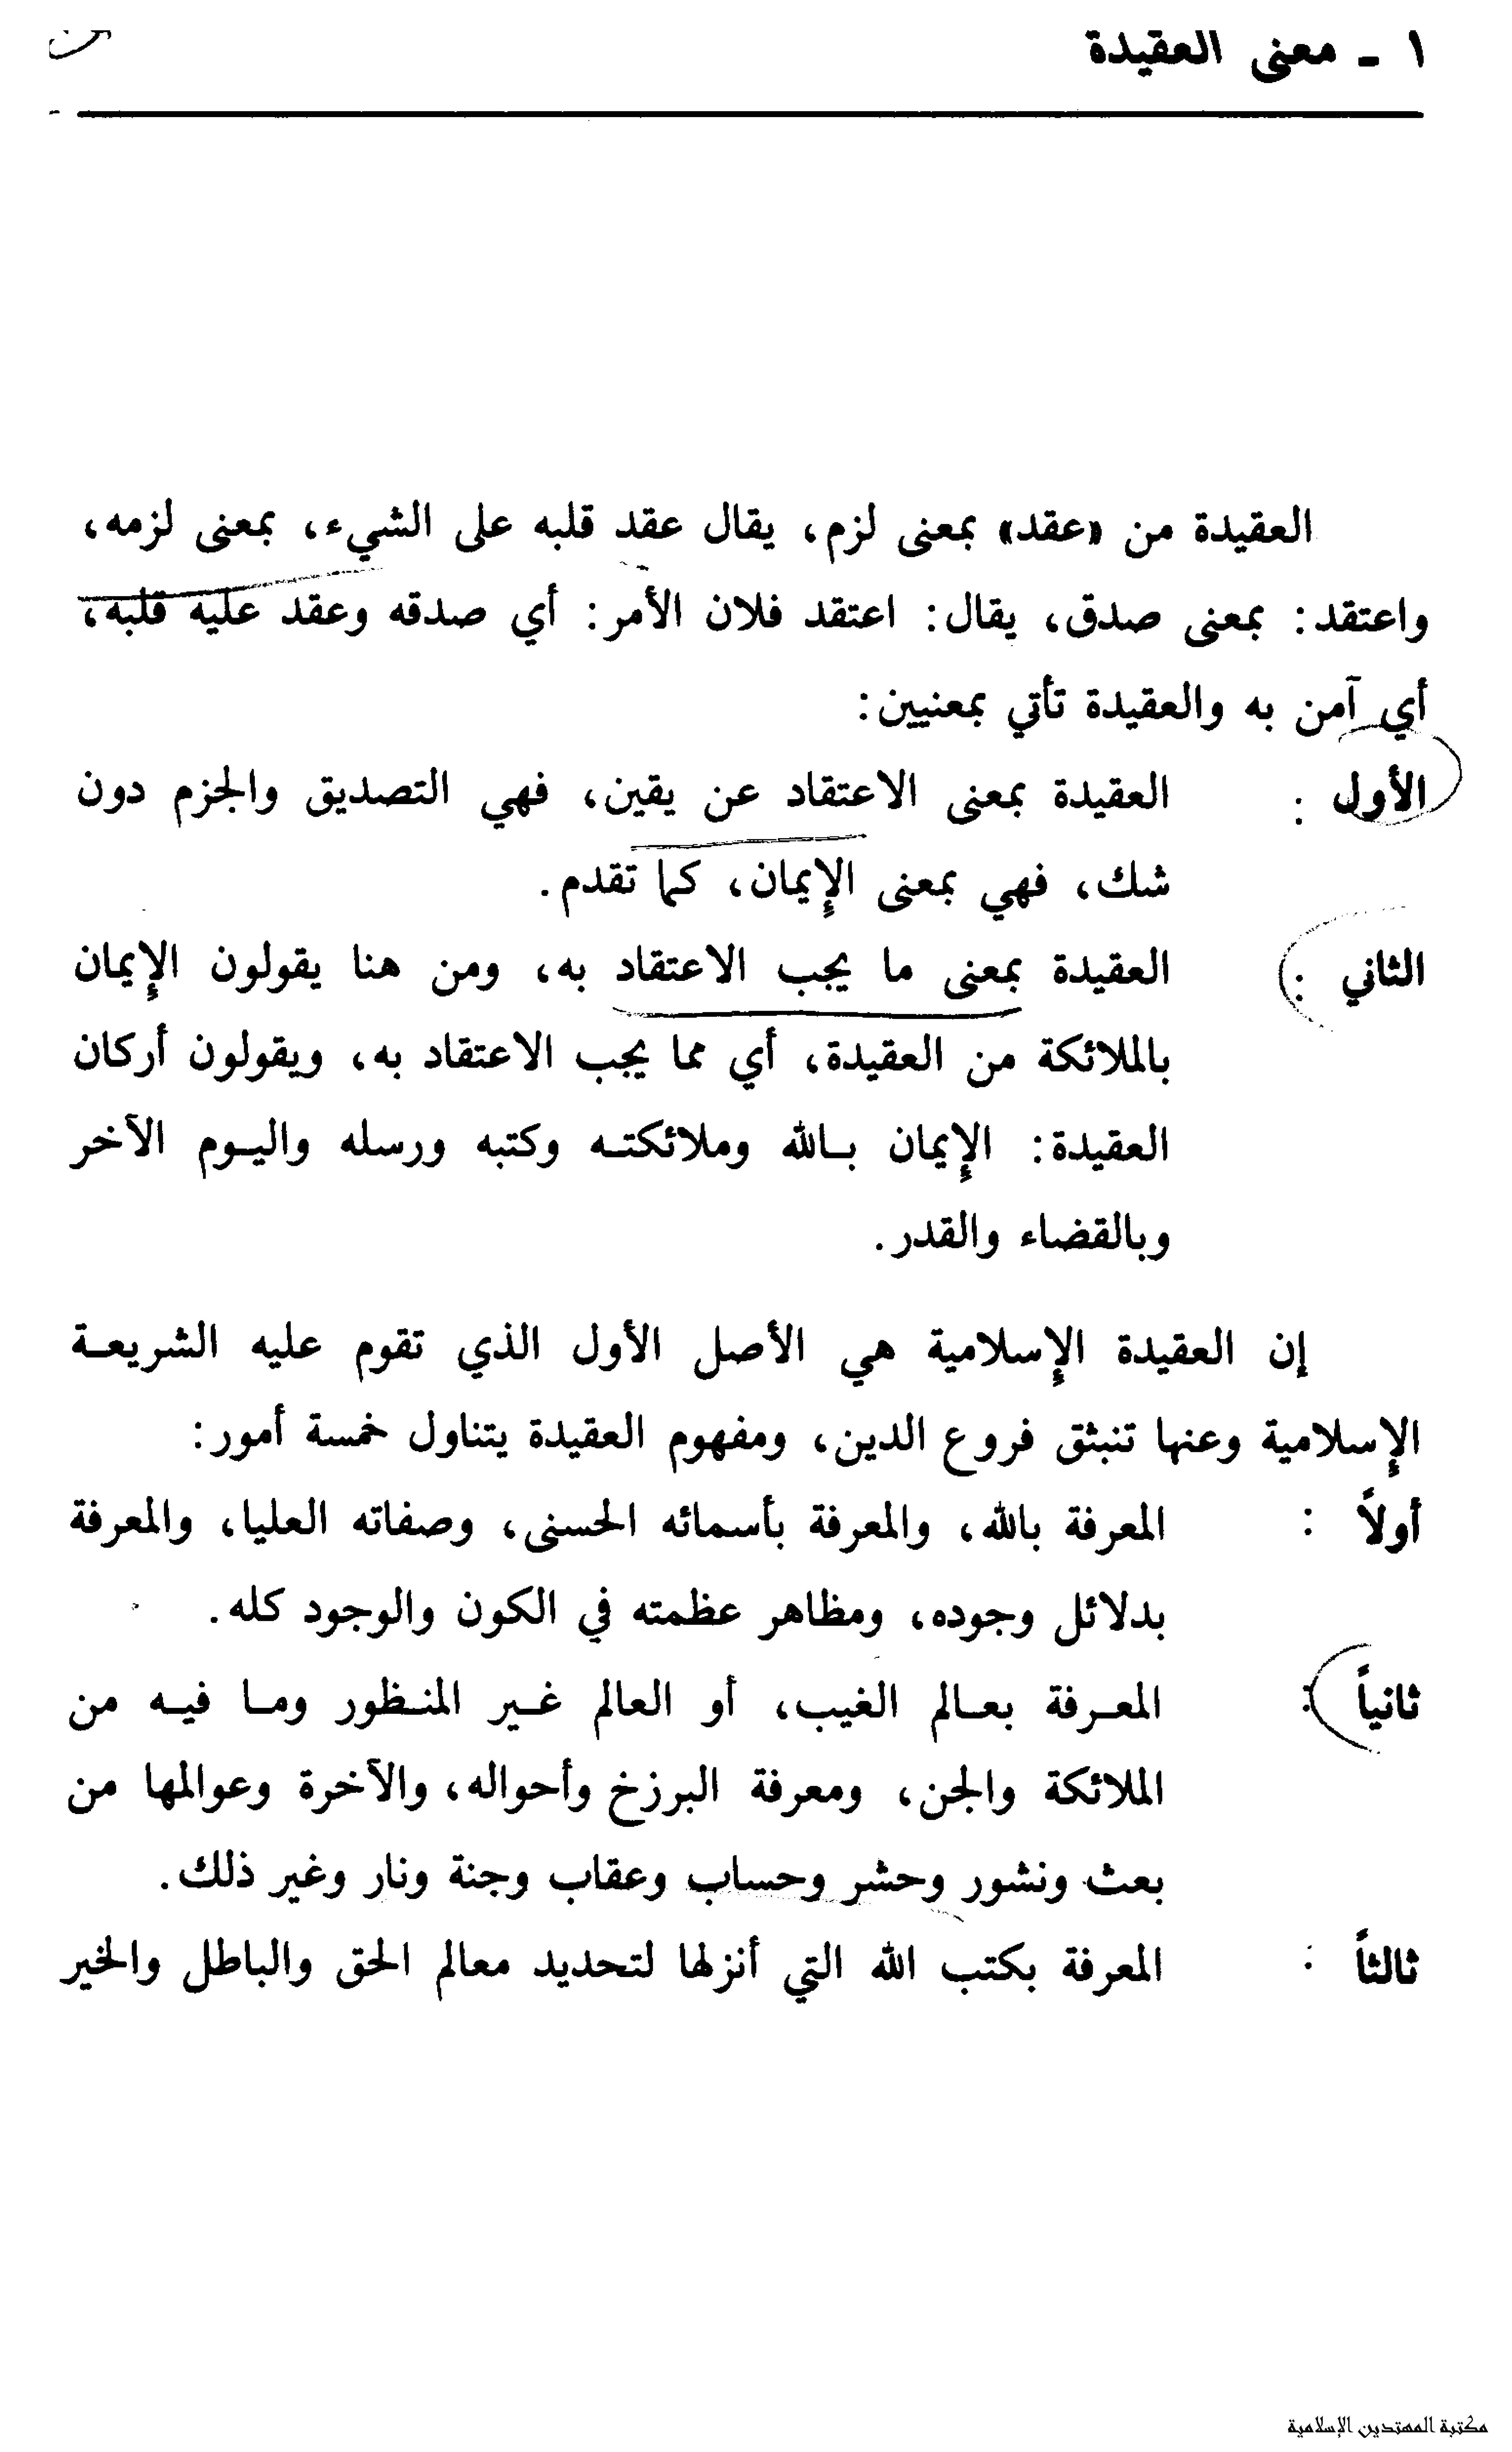 ١ ـ معنى العقيدة
العقيدة من «عقد» بمعنى لزم، يقال عقد قلبه على الشيء، بمعنى لزمه،
واعتقد: بمعنى صدق، يقال: اعتقد فلان الأمر: أي صدقه وعقد عليه قلبه،
أي آمن به والعقيدة تأتي بمعنيين:
الأول : العقيدة بمعنى الاعتقاد عن يقين، فهي التصديق والجزم دون
شك، فهي بمعنى الإيمان، كما تقدم.
الثاني : العقيدة بمعنى ما يجب الاعتقاد به، ومن هنا يقولون الإيمان
بالملائكة من العقيدة، أي مما يجب الاعتقاد به، ويقولون أركان
العقيدة: الإيمان بـالله وملائكتـه وكتبه ورسله واليـوم الآخر
وبالقضاء والقدر.
إن العقيدة الإسلامية هي الأصل الأول الذي تقوم عليه الشريعـة
الإسلامية وعنها تنبثق فروع الدين، ومفهوم العقيدة يتناول خمسة أمور:
أولاً : المعرفة بالله، والمعرفة بأسمائه الحسنى، وصفاته العليا، والمعرفة
بدلائل وجوده، ومظاهر عظمته في الكون والوجود كله.
ثانياً : المعـرفة بعـالم الغيب، أو العالم غـير المنـظور ومـا فيـه من
الملائكة والجن، ومعرفة البرزخ وأحواله، والآخرة وعوالمها من
بعث ونشور وحشر وحساب وعقاب وجنة ونار وغير ذلك.
ثالثاً : المعرفة بكتب الله التي أنزلها لتحديد معالم الحق والباطل والخير
مكتبة المهتدين الإسلامية